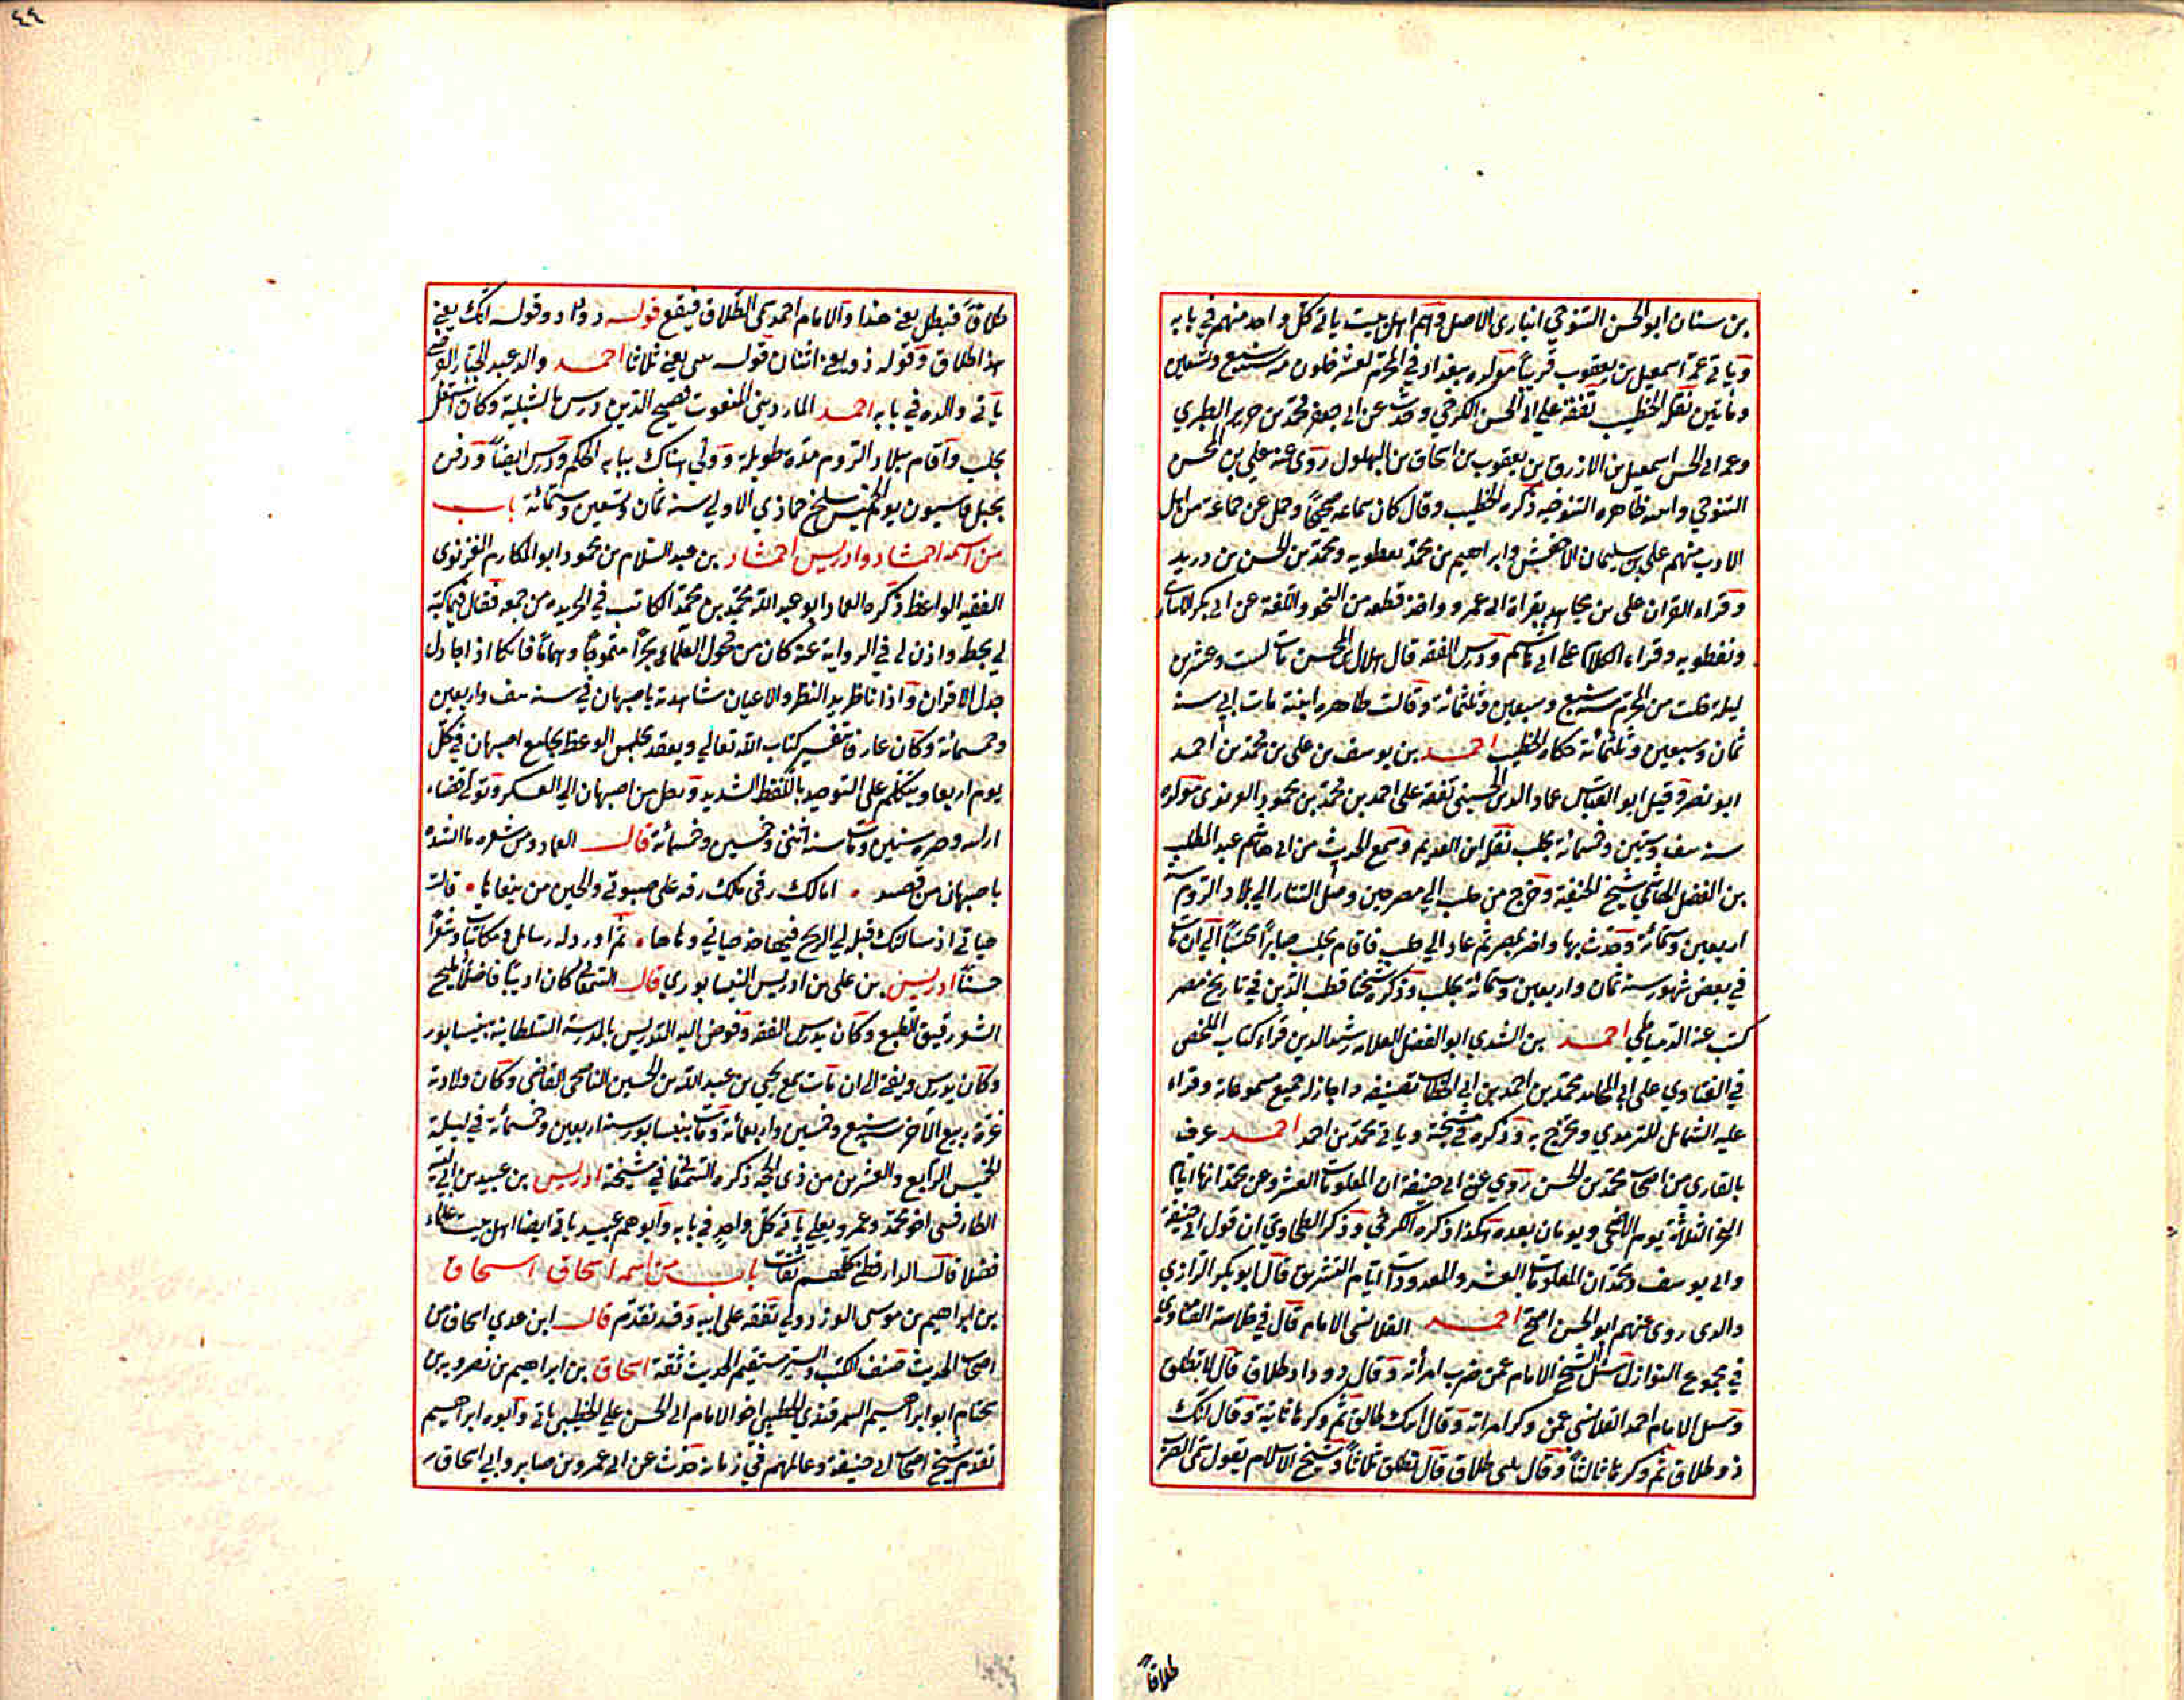 بن سنان ابو الحسن التنوخي انباري الاصل وهم اهل بيت ياتي كل واحد منهم في بابه
وياتي عمه اسمعيل بن يعقوب قريبا مولده ببغداد في المحرم لعشر خلون منه سنة سبع وتسعين
ومأتين نقله الخطيب تفقه على ابي الحسن الكرخي وحدث عن ابي جعفر محمد بن جرير الطبري
وعم ابي الحسن اسمعيل بن الازرق بن يعقوب بن اسحاق بن البهلول روى عنه علي بن المحسن
التنوخي وابنه طاهره التنوخيه ذكره الخطيب وقال كان سماعه صحيحا وحمل عن جماعة من اهل
الادب منهم علي بن سليمان الاخفش وابراهيم بن محمد نفطويه ومحمد بن الحسن بن دريد
وقراء القران على بن مجاهد بقراة ابي عمرو واخذ قطعه من النحو واللغة عن ابي بكر الانباري
ونفطويه وقراء الكلام على ابي هاشم ودرس الفقه قال هلال بن المحسن مات لست وعشرين
ليلة خلت من المحرم سنة سبع وسبعين وثلثمائة وقالت طاهره ابنته مات ابي سنة
ثمان وسبعين وثلثمائة حكاه الخطيب احمد بن يوسف بن علي بن محمد بن احمد
ابو نصر وقيل ابو العباس عماد الدين الحسيني تفقه على احمد بن محمد بن محمود الغزنوي مولده
سنة نيف وستين وخمسمائة بحلب نقله ابن العديم وسمع الحديث من ابي هاشم عبد المطلب
بن الفضل الهاشمي شيخ الحنفية وخرج من حلب الي مصر حين وصل التتار الي بلاد الروم سنة
اربعين وستمائة وحدث بها واضر بمصر ثم عاد الي حلب فاقام بحلب صابرا محتسبا الي ان مات
في بعض شهور سنة ثمان واربعين وستمائة بحلب وذكره شيخنا قطب الدين في تاريخ مصر
كتب عنه الدمياطي احمد بن الشدي ابو الفضل العلامه رشيد الدين قراء كتاب الملخص
في الفتاوي على ابي المحامد محمد بن احمد بن ابي الخطاب تصنيفه واجاز له جميع مسموعاته وقراء
عليه الشمائل للترمذي وتخرج به وذكره في مشيخته وياتي محمد بن احمد احمد عرف
بالقاري من اصحاب محمد بن الحسن روي عن ابي حنيفة ان المعلومات العشر وعن محمد انها ايام
النحر الثلاثة يوم الاضحى ويومان بعده هكذا ذكره الكرخي وذكر الطحاوي ان قول ابي حنيفة
وابي يوسف ومحمد ان المعلومات العشر والمعدودات ايام التشريق قال ابو بكر الرازي
والذي روى عنهم ابو الحسن اصح احمد القلانسي الامام قال في خلاصة الفتاوي
في مجموع النوازل سئل الشيخ الامام عمن ضرب امرأته وقال دو داد طلاق قال لا تطلق
وسئل الامام احمد القلانسي عمن وكز امراته وقال انك طالق ثم وكزها ثانية وقال انك
ذو طلاق ثم وكزها ثالثا وقال طلاق قال تطلق ثلاثا وشيخ الاسلام يقول سمى الضرب
طلاقا
٤٤
طلاقا فبطل يعني هذا والامام احمد سمى الطلاق فيقع قوله وقوله انك يعني
هذا طلاق وقوله ذو يعني اثنان قوله يعني ثلاثا احمد والد عبد الجبار
ياتي والده في بابه احمد المارديني المنعوت فصيح الدين درس بالشبلية وكان اشتغل
بحلب واقام ببلاد الروم مدة طويلة وولي هناك نيابه الحكم ودرس ايضا ودفن
بجبل قاسيون يوم الخميس سلخ جمادي الاولي سنة ثمان وتسعين وستمائة باب
من اسمه احمشاد وادريس احمشاد بن عبد السلام بن محمود ابو المكارم الغزنوي
الفقيه الواعظ ذكره العماد ابو عبد الله محمد بن محمد الكاتب في الخريده من جمعه فقال فيما كتبه
لي بخطه واذن لي في الرواية عنه كان من فحول العلماء بحرا متموجا وهماما فاتكا اذا جادل
جدل الاقران واذا ناظر بهر النظر والاعيان شاهدته باصبهان في سنة نيف واربعين
وخمسمائة وكان عارفا بتفسير كتاب الله تعالي ويعقد مجلس الوعظ بجامع اصبهان في كل
يوم اربعا ويتكلم على التوحيد باللفظ الشديد ورحل من اصبهان الي العسكر وتولي قضاء
ارانيه وجنزه سنين ومات سنة اثنتين وخمسين وخمسمائة قال العماد ومن شعره ما انشده
باصبهان من قصيده • امالك رقي ملك رقه على صبوتي والحين من تبعاتها • قالت
حياتي اذ سالتك قبله لي الربح فيها خذ حياتي وهاتها • ثم اورد له رسائل ومكاتبات وشعرا
حسنا ادريس بن علي بن ادريس النيسابوري قال السمعاني كان اديبا فاضلا مليح
الشعر رقيق الطبع وكان يدرس الفقه وفوض اليه التدريس بالمدرسة السلطانية بنيسابور
وكان يدرس ويفتي الى ان مات سمع يحيي بن عبد الله بن الحسين الناصحي القاضي وكان ولادته
غرة ربيع الآخر سنة سبع وخمسين واربعمائة ومات بنيسابور سنة اربعين وخمسمائة في ليلة
الخميس الرابع والعشرين من ذي الحجة ذكره السمعاني في مشيخته ادريس بن عبيد بن ابي امية
الطنافسي اخو محمد وعمر ويعلي ياتي كل واحد في بابه وابوهم عبيد ياتي ايضا اهل بيت علماء
فضلا قال الدارقطني كلهم ثقات باب من اسمه اسحاق اسحاق
بن ابراهيم بن موسى الوزدولي تفقه على ابيه وقد تقدم قال ابن عدي اسحاق من
اصحاب الحديث صنف الكتب والسير مستقيم الحديث ثقة اسحاق بن ابراهيم بن نصرويه بن
سختام ابو ابراهيم السمرقندي الخطيبي اخو الامام ابي الحسن علي الخطيبي ياتي وابوه ابراهيم
تقدم شيخ اصحاب ابي حنيفة وعالمهم في زمانه حدث عن ابي عمرو بن صابر وابي اسحاق